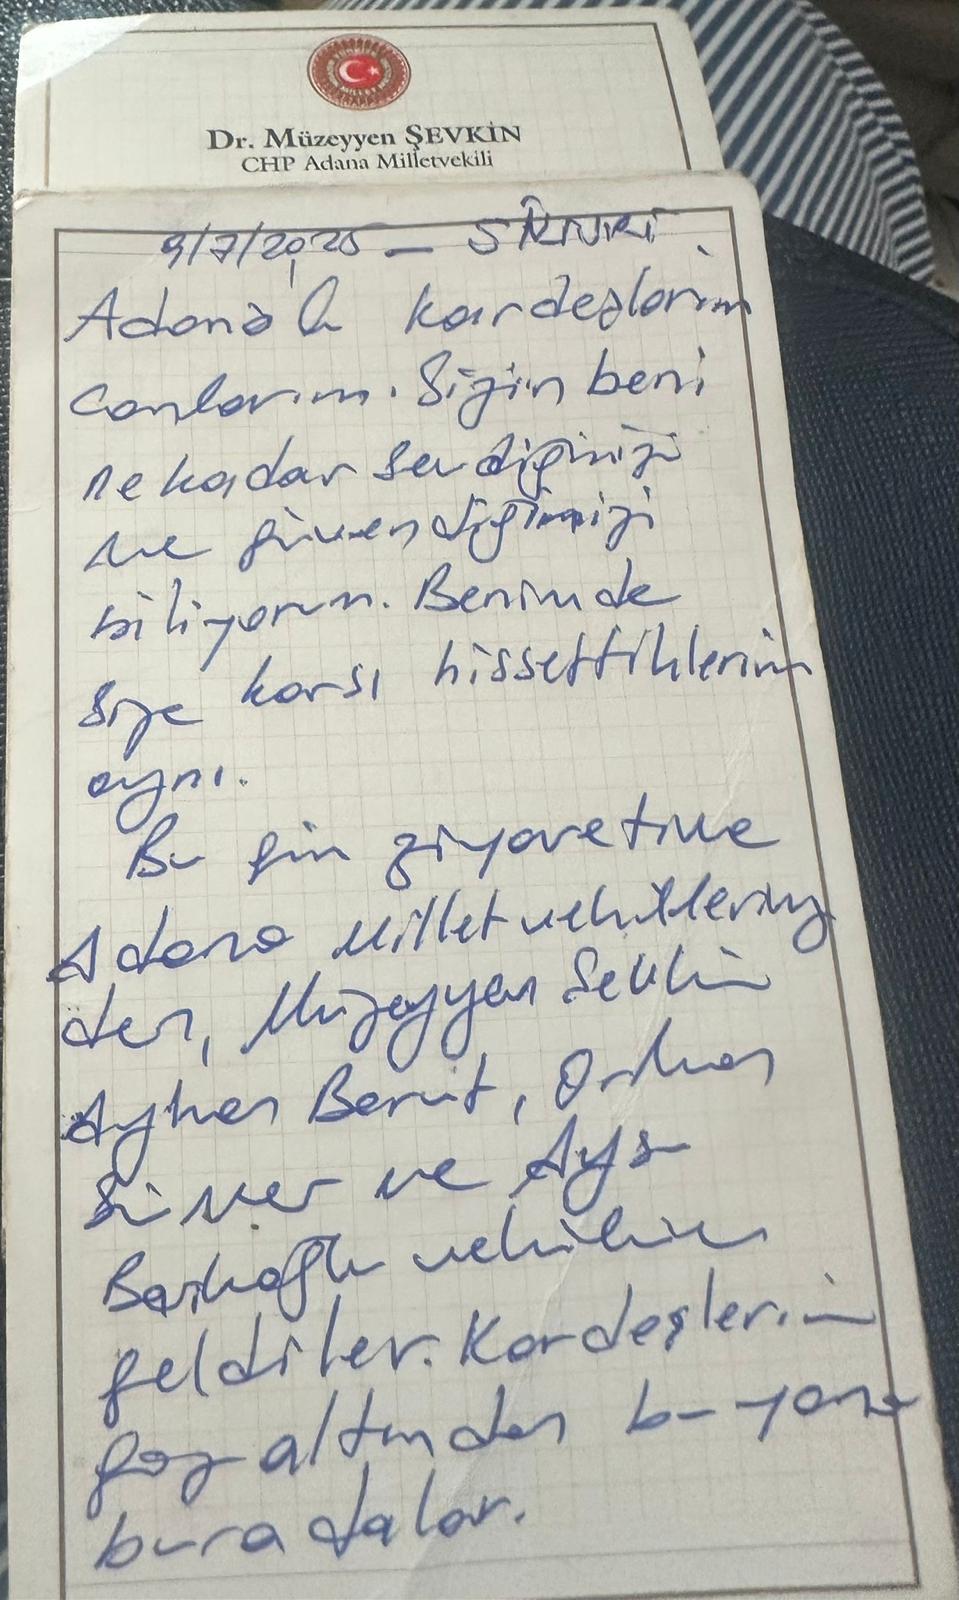 Dr. Müzeyyen ŞEVKİN
CHP Adana Milletvekili
9/7/2025 - SİLİVRİ
Adanalı kardeşlerim
canlarım. Sizin beni
ne kadar sevdiğinizi
ve güvendiğinizi
biliyorum. Benimde
size karşı hissettiklerim
aynı.
Bu gün ziyaretime
Adana Milletvekillerimiz
den, Müzeyyen Şevkin
Ayhan Barut, Orhan
Sümer ve
vekilim
geldiler. Kardeşlerim
göz altından bu yana
buradalar.